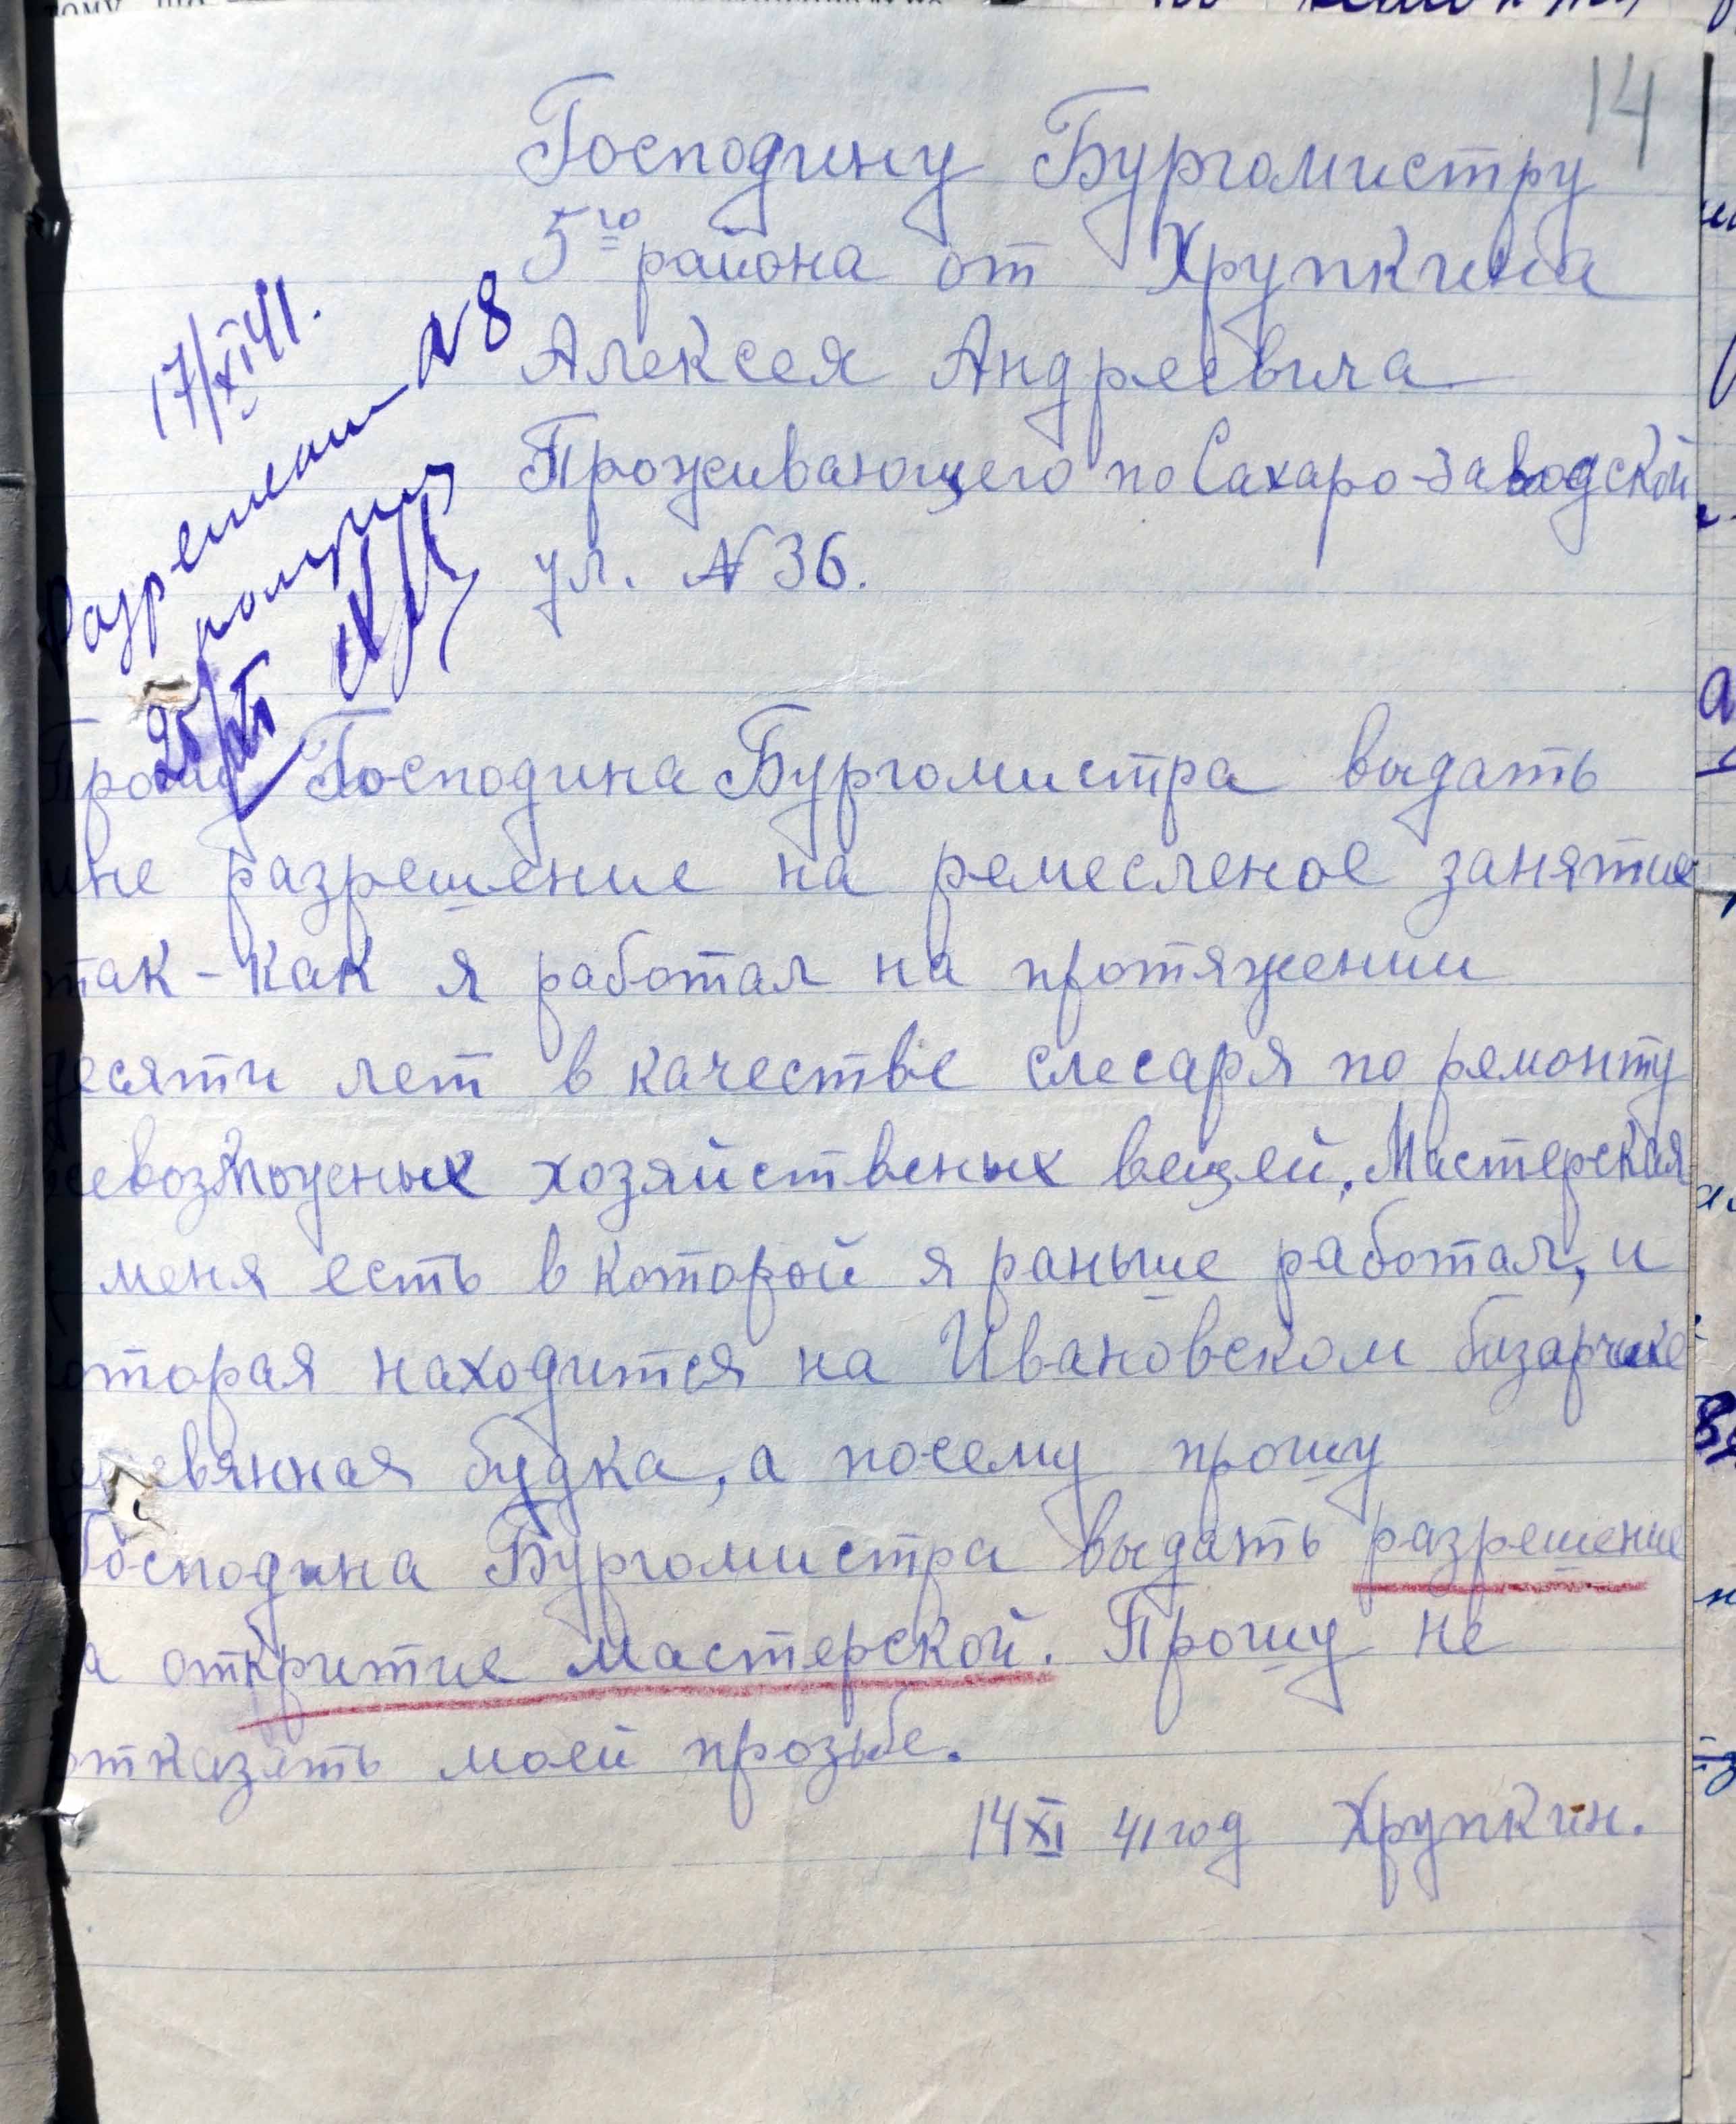 14
Господину Бургомистру
5го района от Хрупкина
Алексея Андреевича
Проживающего по Сахаро-Заводской
ул. № 36.
17/XI 41.
Разрешение № 8
получил
25/XI
Прошу Господина Бургомистра выдать
мне разрешение на ремесленое занятие
так-как я работал на протяжении
десяти лет в качестве слесаря по ремонту
севозможеных хозяйственых вещей. Мастерская
меня есть в которой я раньше работал, и
оторая находится на Ивановском базарчике
евянная будка, а посему прошу
Господина Бургомистра выдать разрешение
а открытие мастерской. Прошу не
отказать моей прозьбе.
14 XI 41 год Хрупкин.